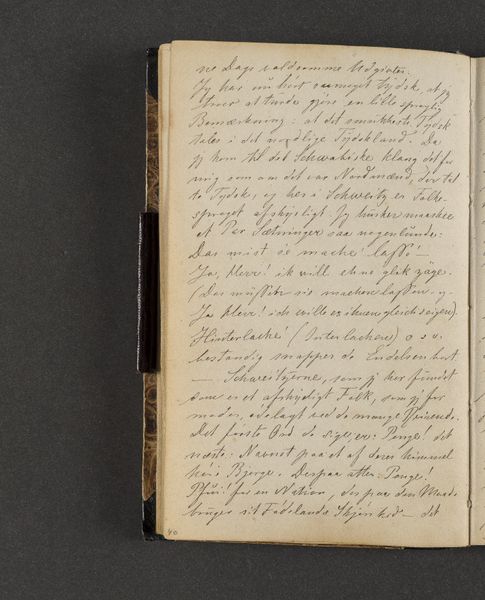 ne Dags voldsomme Udgivter.
Jeg har nu hört saameget tydsk, at jeg
troer at turde gjöre en lille sproglig
Bemærkning: at det smukkeste Tydsk
tales i det nordlige Tydskland. Da
jeg kom til det Schwabiske klang det for
mig som om det var Nordmænd, der tal
te Tydsk, og her i Schweitz er Folke-
sproget afskyeligt. Jeg husker maaskee
et Par Sætninger saa nogenlunde:
Das mist se mache lasse –
Ja, Herr! ik will
(Das müssen sie machen lassen. –
Ja Herr! ich will es ihnen gleich zeigen)
Hinterlache! (Interlachen) o s v.
bestandig snapper de Endelsen bort
– Schweitzerne, som jeg her fundet
som er et afskyeligt Folk, som jeg for
moder, ödelagt ved de mange Reisende.
Det förste Ord de siger, er: Penge! det
næste: Navnet paa et af deres himmel
höie Bjerge. Derpaa atter: Penge!
Pfui! for en Nation, der paa den Maade
bruger sit Födelands Skjönhed – det
40